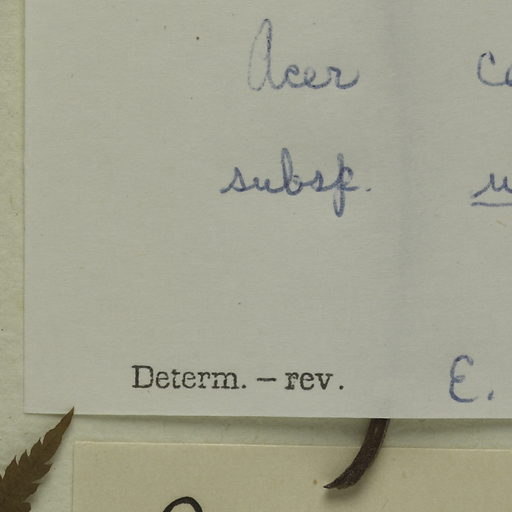 Acer
subsp.
Determ. – rev. E.